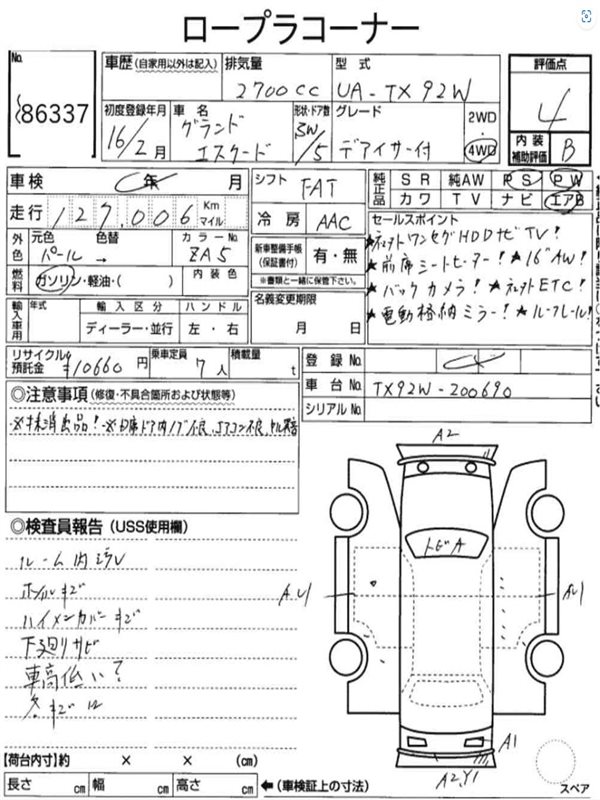 ロープラコーナー
No.
86337
車歴 (自家用以外は記入) 排気量 型式
2700cc UA-TX92W
初度登録年月 車名 形状・ドア数 グレード
16/2月 グランドエスクード 5W/5 デアイサー付
2WD
・
4WD
評価点
4
内装
補助評価 B
車検 年 月
走行 127,006 Km マイル
外色 元色 色替 カラーNo.
パール → ZA5
燃料 ガソリン・軽油・( ) 内装色
輸入車用 年式 輸入区分 ハンドル
ディーラー・並行 左・右
シフト FAT
冷房 AAC
新車整備手帳
(保証書付) 有・無
※書類と一緒に保管下さい。
名義変更期限
月 日
純正品 SR 純AW PS PW
カワ TV ナビ エアB
セールスポイント
HDDナビTV!
★前席シートヒーター! ★16"AW!
★バックカメラ! ETC!
★電動格納ミラー! ★ルーフレール!
リサイクル預託金 ¥10660円 乗車定員 7人 積載量 t
登録No.
車台No. TX92W-200690
シリアルNo.
◎注意事項 (修復・不具合箇所および状態等)
◎検査員報告 (USS使用欄)
ルーム内汚レ
ホイルキズ
ハイメンカバーキズ
下廻りサビ
車高低い?
A2
トビA
A1
A2,Y1
スペア
【荷台内寸】約 × × (cm)
長さ cm 幅 cm 高さ cm ←(車検証上の寸法)